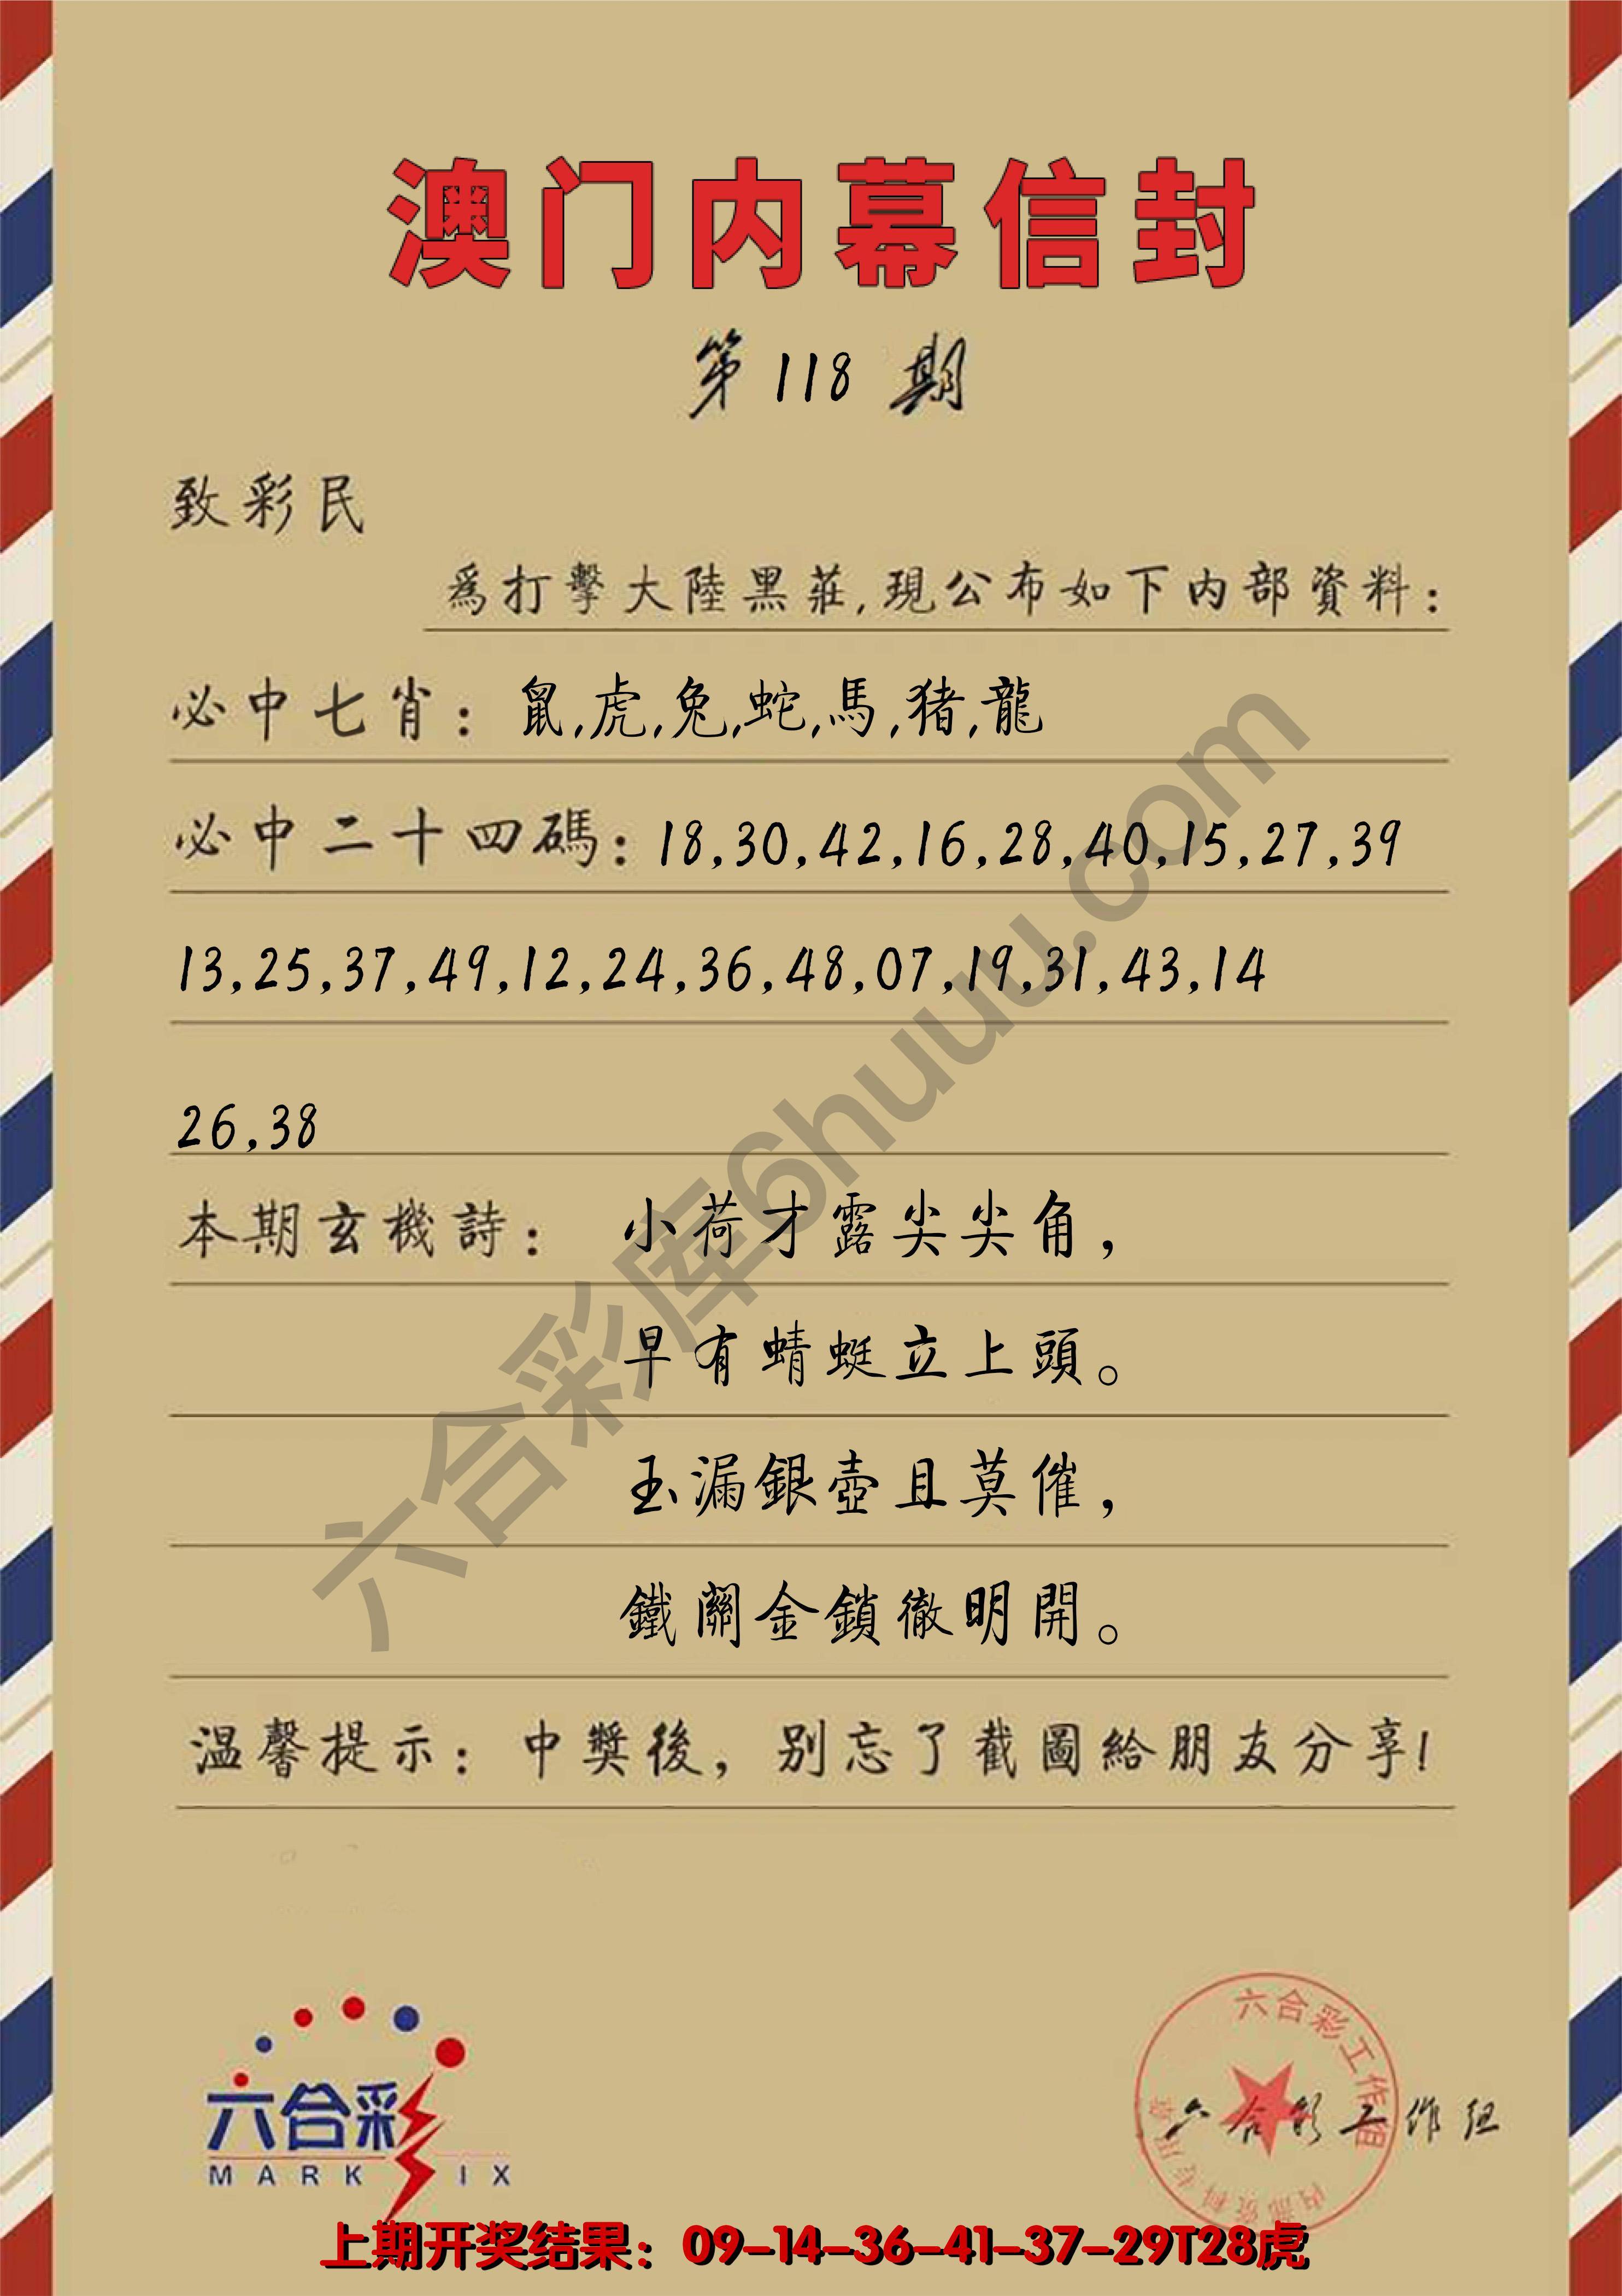 澳门内幕信封
第118期
致彩民
爲打擊大陸黑莊,現公布如下内部資料:
必中七肖: 鼠,虎,兔,蛇,馬,猪,龍
必中二十四碼: 18,30,42,16,28,40,15,27,39
13,25,37,49,12,24,36,48,07,19,31,43,14
26,38
本期玄機詩: 小荷才露尖尖角,
早有蜻蜓立上頭。
玉漏銀壺且莫催,
鐵關金鎖徹明開。
温馨提示: 中獎後, 别忘了截圖給朋友分享!
六合彩库6huuu.com
六合彩
MARK IX
六合彩工作组
六合彩工作组
上期开奖结果: 09-14-36-41-37-29T28虎